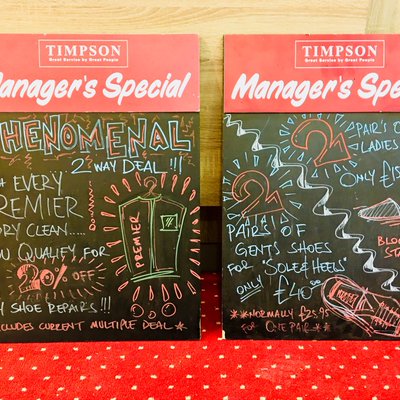 TIMPSON
Great Service by Great People
Manager's Special
PHENOMENAL
2 WAY DEAL !!!
EVERY
PREMIER
DRY CLEAN.....
QUALIFY FOR
20% OFF
SHOE REPAIRS!!!
CURRENT MULTIPLE DEAL *
PREMIER
TIMPSON
Great Service by Great People
Manager's Spe
2 PAIR'S O
LADIES
ONLY £15
2
PAIRS OF
GENTS SHOES
FOR "SOLE & HEELS"
ONLY £40
**NORMALLY £25.95
FOR ONE PAIR**